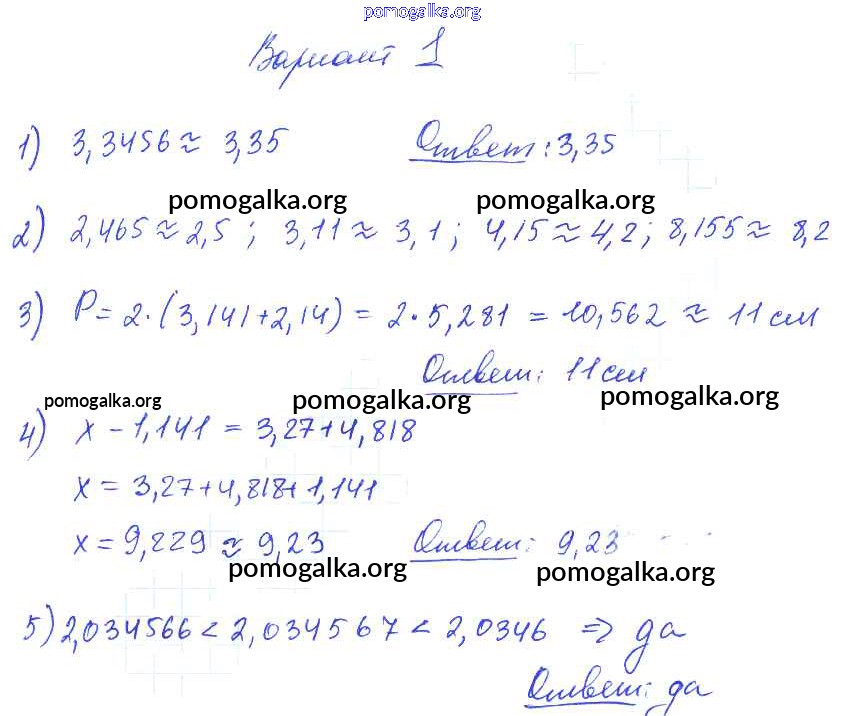 pomogalka.org
Вариант 1
1) 3,3456 ≈ 3,35 Ответ: 3,35
pomogalka.org pomogalka.org
2) 2,465 ≈ 2,5 ; 3,11 ≈ 3,1 ; 4,15 ≈ 4,2 ; 8,155 ≈ 8,2
3) P = 2·(3,141+2,14) = 2·5,281 = 10,562 ≈ 11 см
Ответ: 11 см
pomogalka.org pomogalka.org pomogalka.org
4) x - 1,141 = 3,27+4,818
x = 3,27+4,818+1,141
x = 9,229 ≈ 9,23 Ответ: 9,23
pomogalka.org pomogalka.org
5) 2,034566 < 2,034567 < 2,0346 => да
Ответ: да